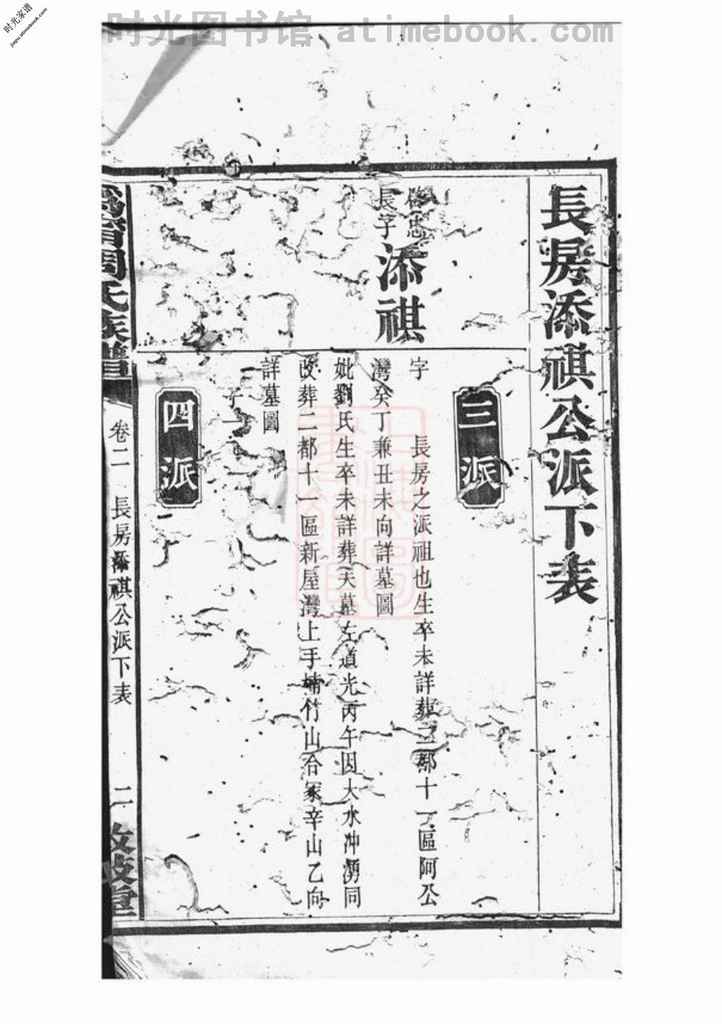 时光图书馆 atimebook.com
时光家谱
jiapu.atimebook.com
長房添祺公派下表
三派
啓忠
長子
添祺
字　長房之派祖也生卒未詳葬二都十一區阿公
灣癸丁兼丑未向詳墓圖
妣劉氏生卒未詳葬夫墓左道光丙午因大水冲塌同
改葬二都十一區新屋灣上手楠竹山合冢辛山乙向
詳墓圖
子一
四派
周氏族譜
卷二
長房添祺公派下表
二